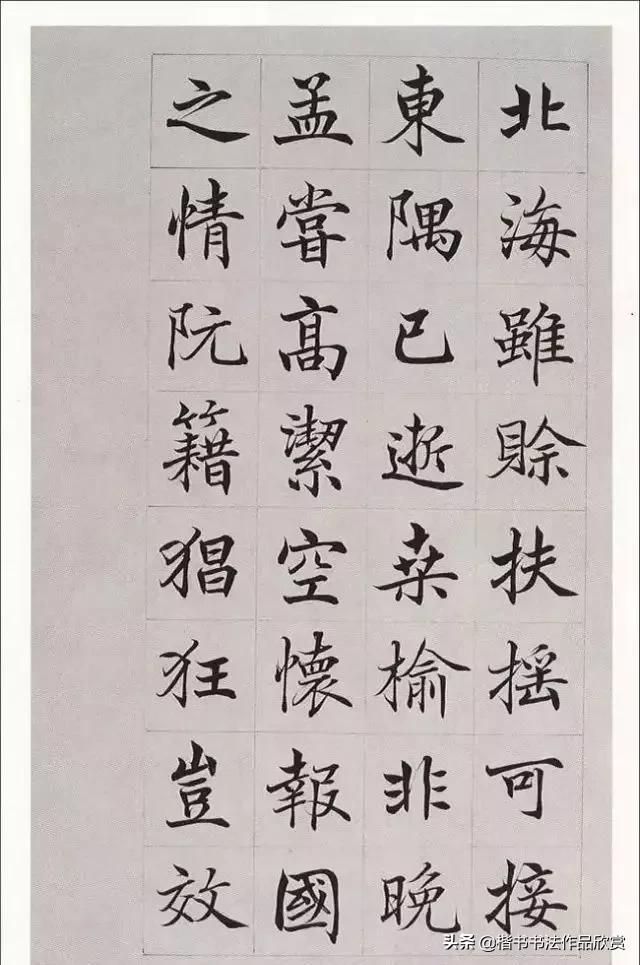 北海雖賒扶摇可接
東隅已逝桒榆非晚
孟嘗高潔空懷報國
之情阮籍猖狂豈效
头条 @楷书书法作品欣赏